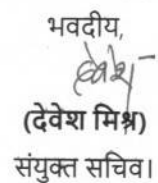 भवदीय,
देवेश
(देवेश मिश्र)
संयुक्त सचिव।